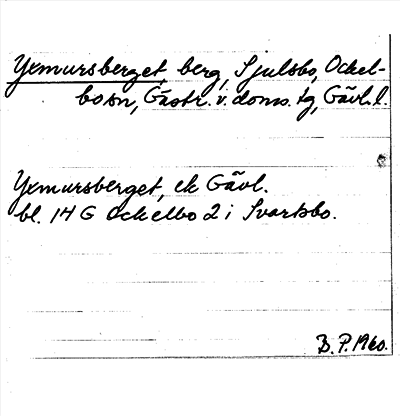 Yxmursberget, berg, Sjulsbo, Ockel-
bo sn, Gästr. v. doms. tg, Gävl. l.
Yxmursberget, ek Gävl.
bl. 14 G Ockelbo 2 i Svartsbo.
B. P. 1960.